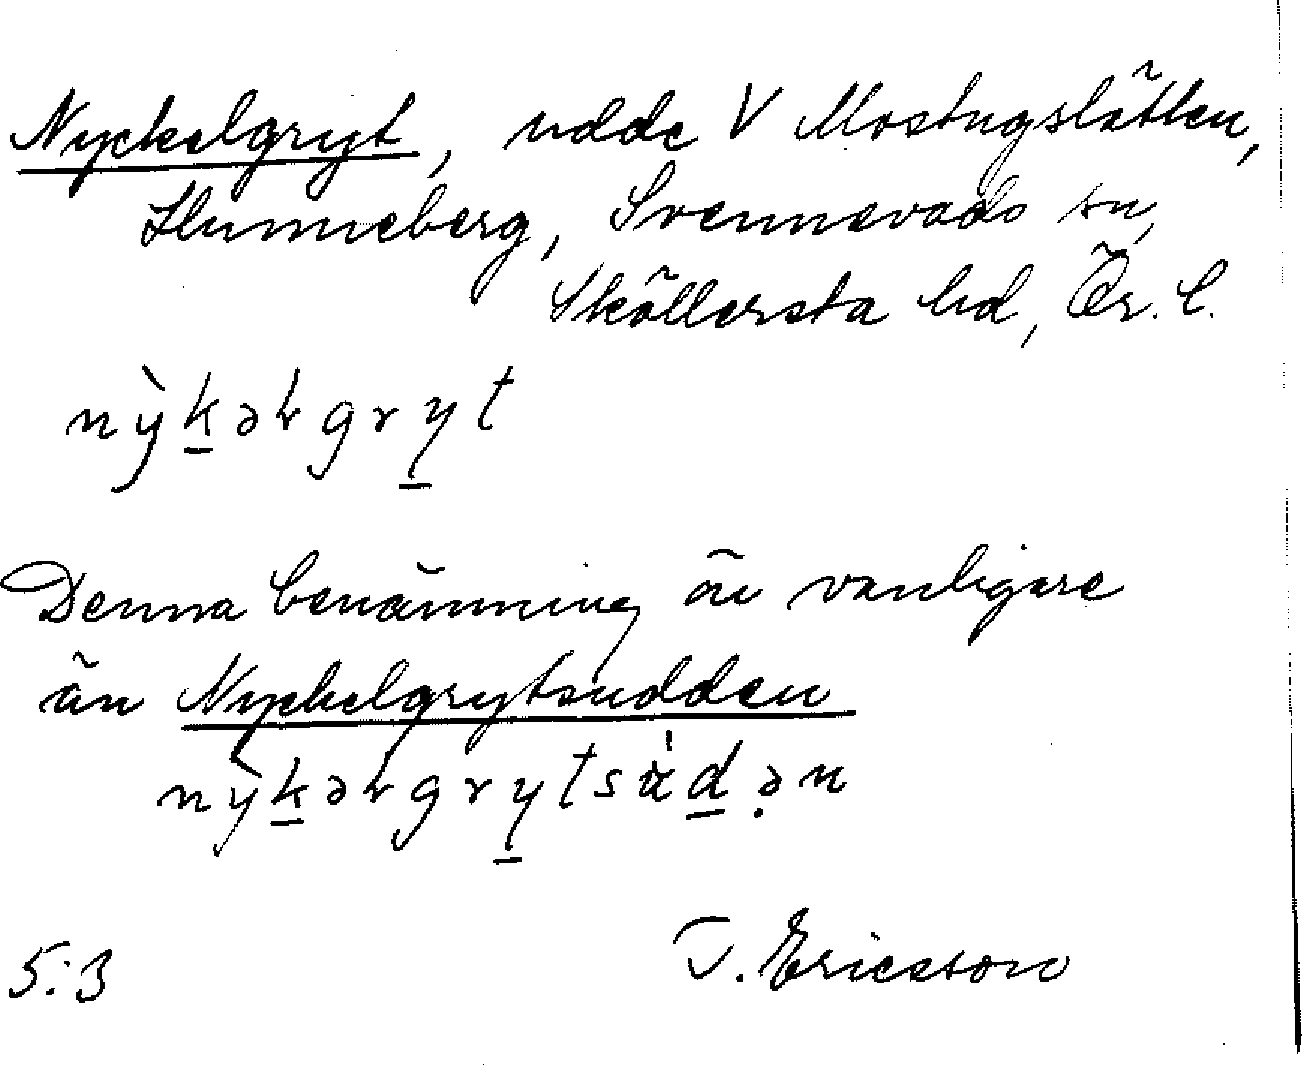 Nyckelgryt, udde V Mostugslätten,
Hunneberg, Svennevads sn,
Sköllersta hd, Ör. l.
nỳk̲əɫgry̲t
Denna benämning är vanligare
än Nyckelgrytsudden
nỳk̲əɫgry̲tsd̲ə̣n
5:3 T. Ericsson